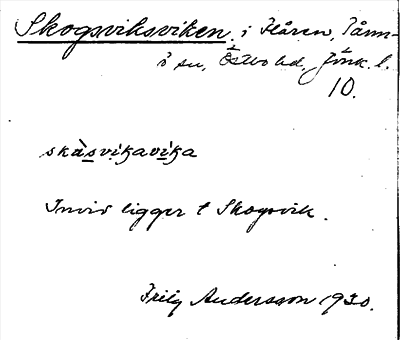 Skogsviksviken i Flåren, Tånn-
ö sn, Östbo hd, Jönk. l.
10.
skàsvikavika
Invid ligger t Skogsvik.
Frily Andersson 1930.